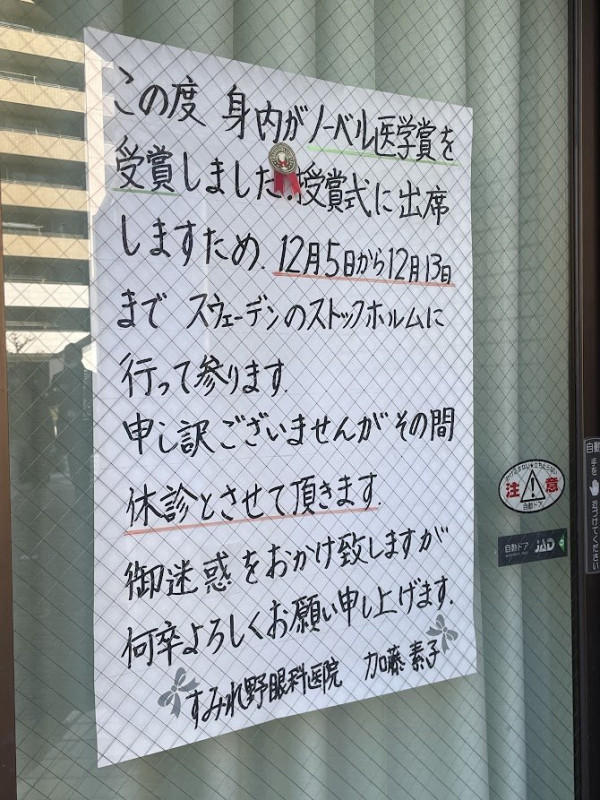 この度 身内がノーベル医学賞を
受賞しました.授賞式に出席
しますため.12月5日から12月13日
まで スウェーデンのストックホルムに
行って参ります.
申し訳ございませんがその間
休診とさせて頂きます.
御迷惑をおかけ致しますが
何卒よろしくお願い申し上げます.
すみれ野眼科医院 加藤 素子
注意
自動ドア
自動ドア JAD
自動
手を近づけてください